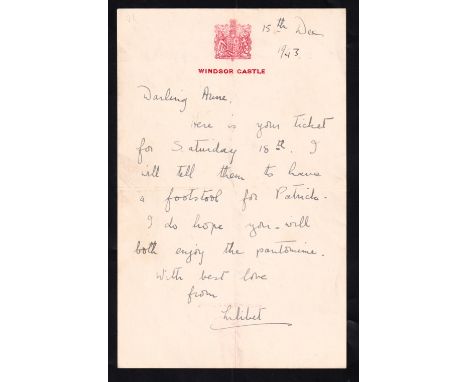 15th Dec
1943.
WINDSOR CASTLE
Darling Anne,
Here is your ticket
for Saturday 18th. I
will tell them to have
a footstool for Patrick.
I do hope you will
both enjoy the pantomime.
With best love
from
Lilibet